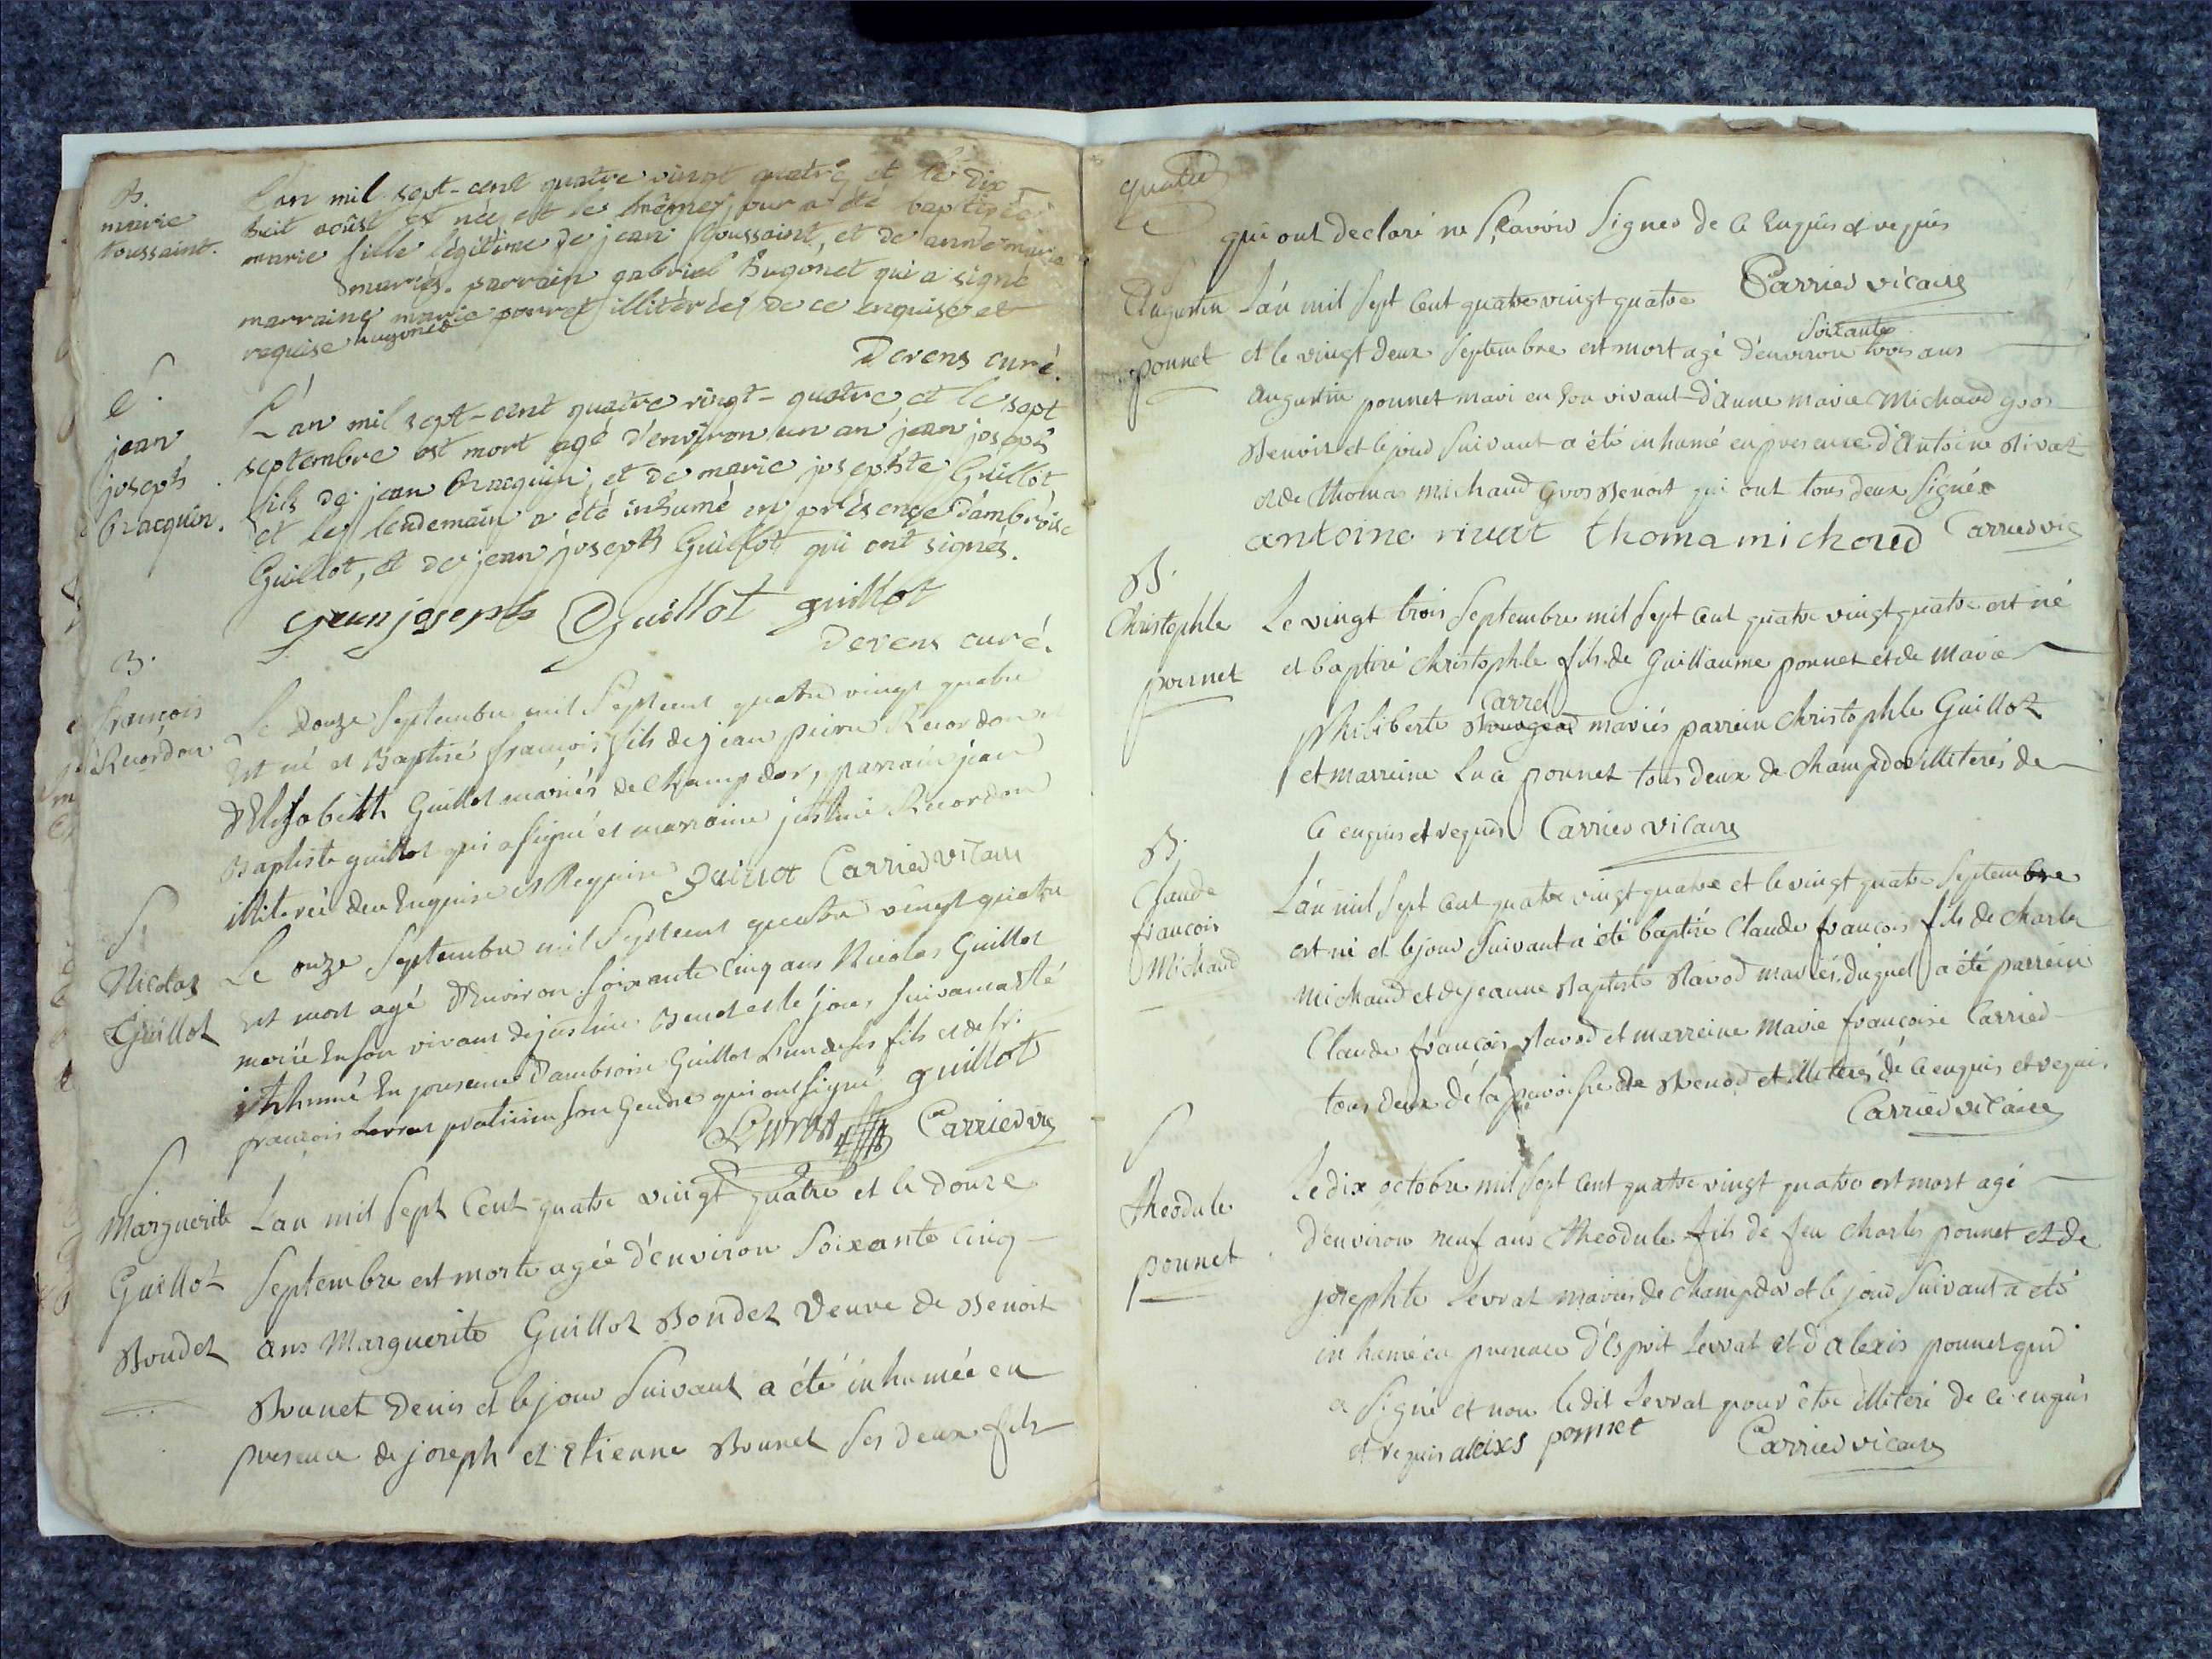 B.
marie
toussaint.
L'an mil sept-cent quatre vingt quatre et le dix
huit aoûst est née et le même jour a été baptisée
marie fille légitime de jean toussaint, et de anne marie
mariés. parrain gabriel hugonet qui a signé
marraine marie pourret illitérée de ce enquise et
requise hugonet
Derens curé.
S.
jean
joseph
bracquin.
L'an mil sept-cent quatre vingt-quatre et le sept
septembre est mort agé d'environ un an jean joseph
fils de jean bracquin, et de marie josephte Guillot
et le lendemain a été inhumé en présence d'ambroise
Guillot, et de jean joseph Guillot qui ont signés.
jean joseph Guillot guillot
Derens curé.
B.
françois
Ruordon
Le douze Septembre mil Sept cent quatre vingt quatre
Est né et Baptisé françois fils de jean pierre Ruordon et
d'Elisabeth Guillot mariés de Champdor, parrain jean
Baptiste guillot qui a signé et marraine justine Ruordon
illiterée de ce Enquise et Requise Guillot Carrier vicaire
S.
Nicolas
Guillot
Le onze Septembre mil Sept cent quatre vingt quatre
Est mort agé d'Environ soixante cinq ans Nicolas Guillot
marié En son vivant de justine Benet et le jour suivant a été
inhumé En presence d'ambroise Guillot l'un de ses fils et de Sr.
françois Levrat praticien son Gendre qui ont signé guillot
Levrat Carrier vic
S
Marguerite
Guillot
Boudet
L'an mil Sept Cent quatre vingt quatre et le douze
Septembre est morte agée d'environ Soixante Cinq
ans Marguerite Guillot Boudet Veuve de Benoit
Brunet Denis et le jour Suivant a été inhumée en
presence de joseph et Etienne Brunet Ses deux fils
quatre
qui ont declaré ne Sçavoir Signer de ce Enquis et requis
Carrier vicaire
S
Augustin
ponnet
L'an mil Sept Cent quatre vingt quatre
et le vingt deux Septembre est mort agé d'environ Soixante trois ans
augustin ponnet mari en Son vivant d'anne marie Michaud gros
Benoit et le jour Suivant a été inhumé en presence d'Antoine Rivat
et de thomas michaud gros Benoit qui ont tous deux Signés
antoine rivat thoma michoud Carrier vic
B.
Christophle
ponnet
Le vingt trois Septembre mil Sept Cent quatre vingt quatre est né
et baptisé christophle fils de Guillaume ponnet et de Marie
Philiberte Carrel mariés parrein christophle Guillot
et marreine Luce ponnet tous deux de champdor illiterés de
ce enquis et requis Carrier vicaire
B.
Claude
françois
Michaud
L'an mil Sept Cent quatre vingt quatre et le vingt quatre Septembre
est né et le jour Suivant a été baptisé Claude françois fils de charles
Michaud et de jeanne Baptiste Ravod mariés, duquel a été parrein
Claude françois Ravod et marreine Marie françoise Carrier
tous deux de la paroisse de Brenod et illiterés de ce enquis et requis
Carrier vicaire
S
Theodule
ponnet
Le dix octobre mil Sept Cent quatre vingt quatre est mort agé
d'environ neuf ans theodule fils de feu charles ponnet et de
josephte Levrat mariés de champdor et le jour Suivant a été
inhumé en presence d'Esprit Levrat et d'alexis ponnet qui
a Signé et non le dit Levrat pour être illiteré de ce enquis
et requis aleixs ponnet Carrier vicaire